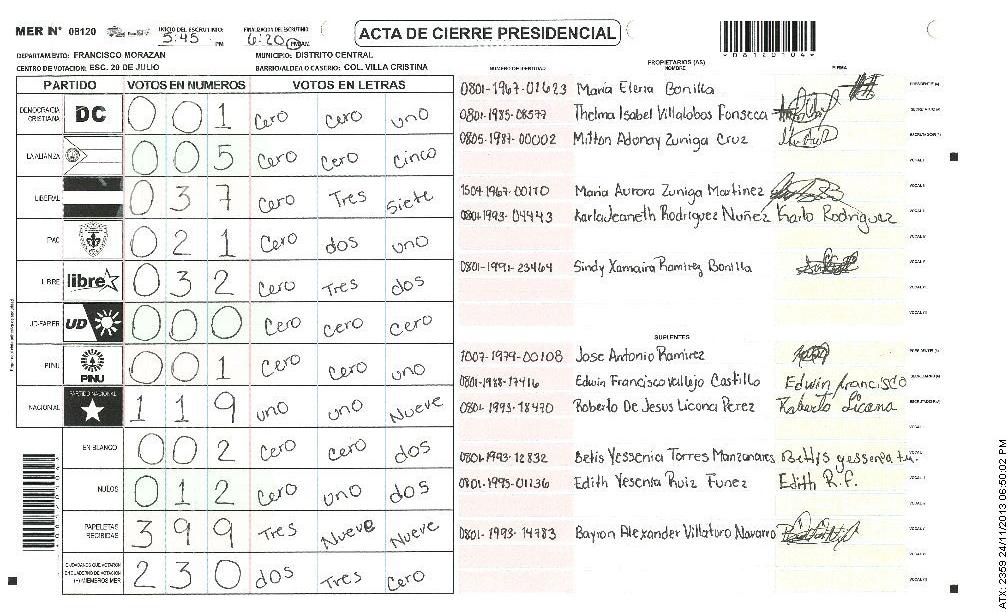 MER N° 08120
INICIO DEL ESCRUTINIO: 5:45 PM
FINALIZACIÓN DEL ESCRUTINIO 6:20 PM AM
ACTA DE CIERRE PRESIDENCIAL
*08120104*
DEPARTAMENTO: FRANCISCO MORAZAN
MUNICIPIO: DISTRITO CENTRAL
CENTRO DE VOTACION: ESC. 20 DE JULIO
BARRIO/ALDEA O CASERIO: COL. VILLA CRISTINA
PARTIDO VOTOS EN NUMEROS VOTOS EN LETRAS
DEMOCRACIA CRISTIANA DC 0 0 1 Cero Cero uno
LA ALIANZA 0 0 5 Cero Cero Cinco
LIBERAL 0 3 7 Cero Tres Siete
PAC 0 2 1 Cero dos uno
LIBRE libre 0 3 2 Cero Tres dos
UD-FAPER UD 0 0 0 Cero Cero Cero
PINU PINU 0 0 1 Cero Cero uno
NACIONAL PARTIDO NACIONAL 1 1 9 uno uno Nueve
EN BLANCO 0 0 2 Cero Cero dos
NULOS 0 1 2 Cero uno dos
PAPELETAS RECIBIDAS 3 9 9 Tres Nueve Nueve
CIUDADANOS QUE VOTARON EN CUADERNO DE VOTACION (+) MIEMBROS MER 2 3 0 dos Tres Cero
NUMERO DE IDENTIDAD PROPIETARIOS (AS) NOMBRE FIRMA
0801-1967-01623 Maria Elena Bonilla PRESIDENTE (A)
0801-1985-08577 Thelma Isabel Villalobos Fonseca SECRETARIO (A)
0805-1987-00002 Milton Adonay Zuniga Cruz ESCRUTADOR (A)
VOCAL I
1504-1967-00110 Maria Aurora Zuniga Martinez VOCAL II
0801-1993-04443 Karla Jeaneth Rodriguez Nuñez Karla Rodriguez
0801-1991-23464 Sindy Xamaira Ramirez Bonilla
SUPLENTES
1007-1979-00108 Jose Antonio Ramirez PRESIDENTE (A)
0801-1988-17416 Edwin Francisco Vallejo Castillo Edwin francisco SECRETARIO (A)
0801-1993-18470 Roberto De Jesus Licona Perez Roberto Licona ESCRUTADOR (A)
0801-1993-12832 Betis Yessenia Torres Manzanares
0801-1995-01136 Edith Yesenia Ruiz Funez Edith R.F.
0801-1993-14783 Bayron Alexander Villatoro Navarro
ATX: 2359 24/11/2013 06:50:02 PM